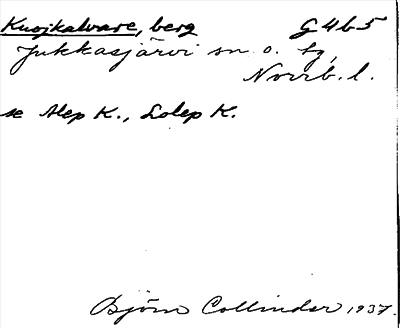 Kuojkalvare, berg G4b5
Jukkasjärvi sn o. tg,
Norrb. l.
se Alep K., Lolep K.
Björn Collinder 1937.